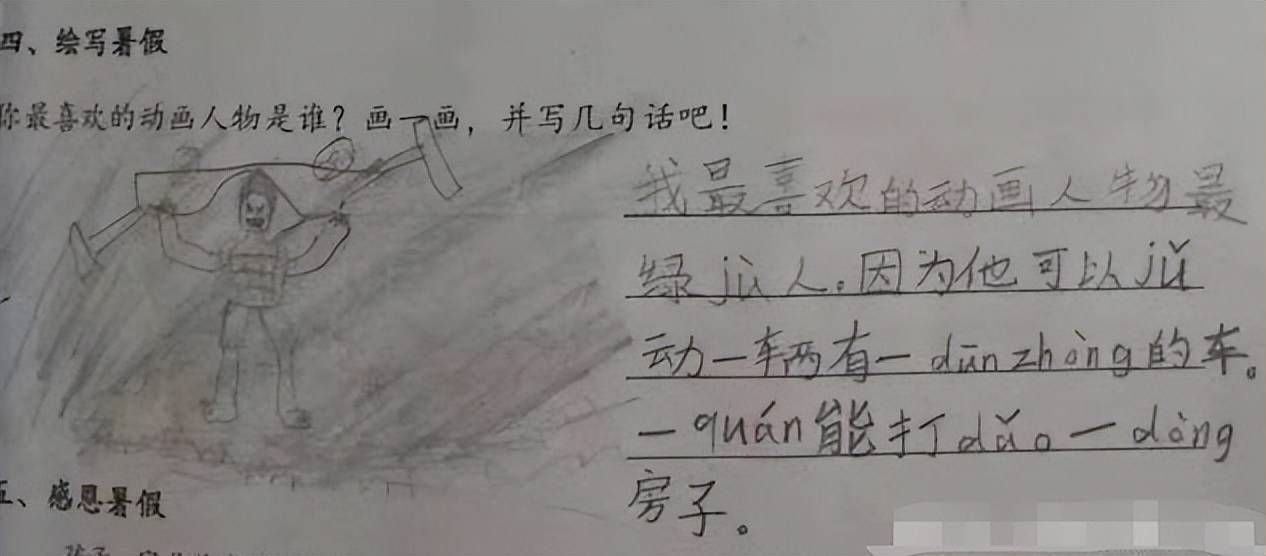 四、绘写暑假
你最喜欢的动画人物是谁？画一画，并写几句话吧！
我最喜欢的动画人物最
绿jù人。因为他可以jǔ
动一车两有一dūnzhòng的车。
一quán能打dǎo一dòng
房子。
五、感恩暑假